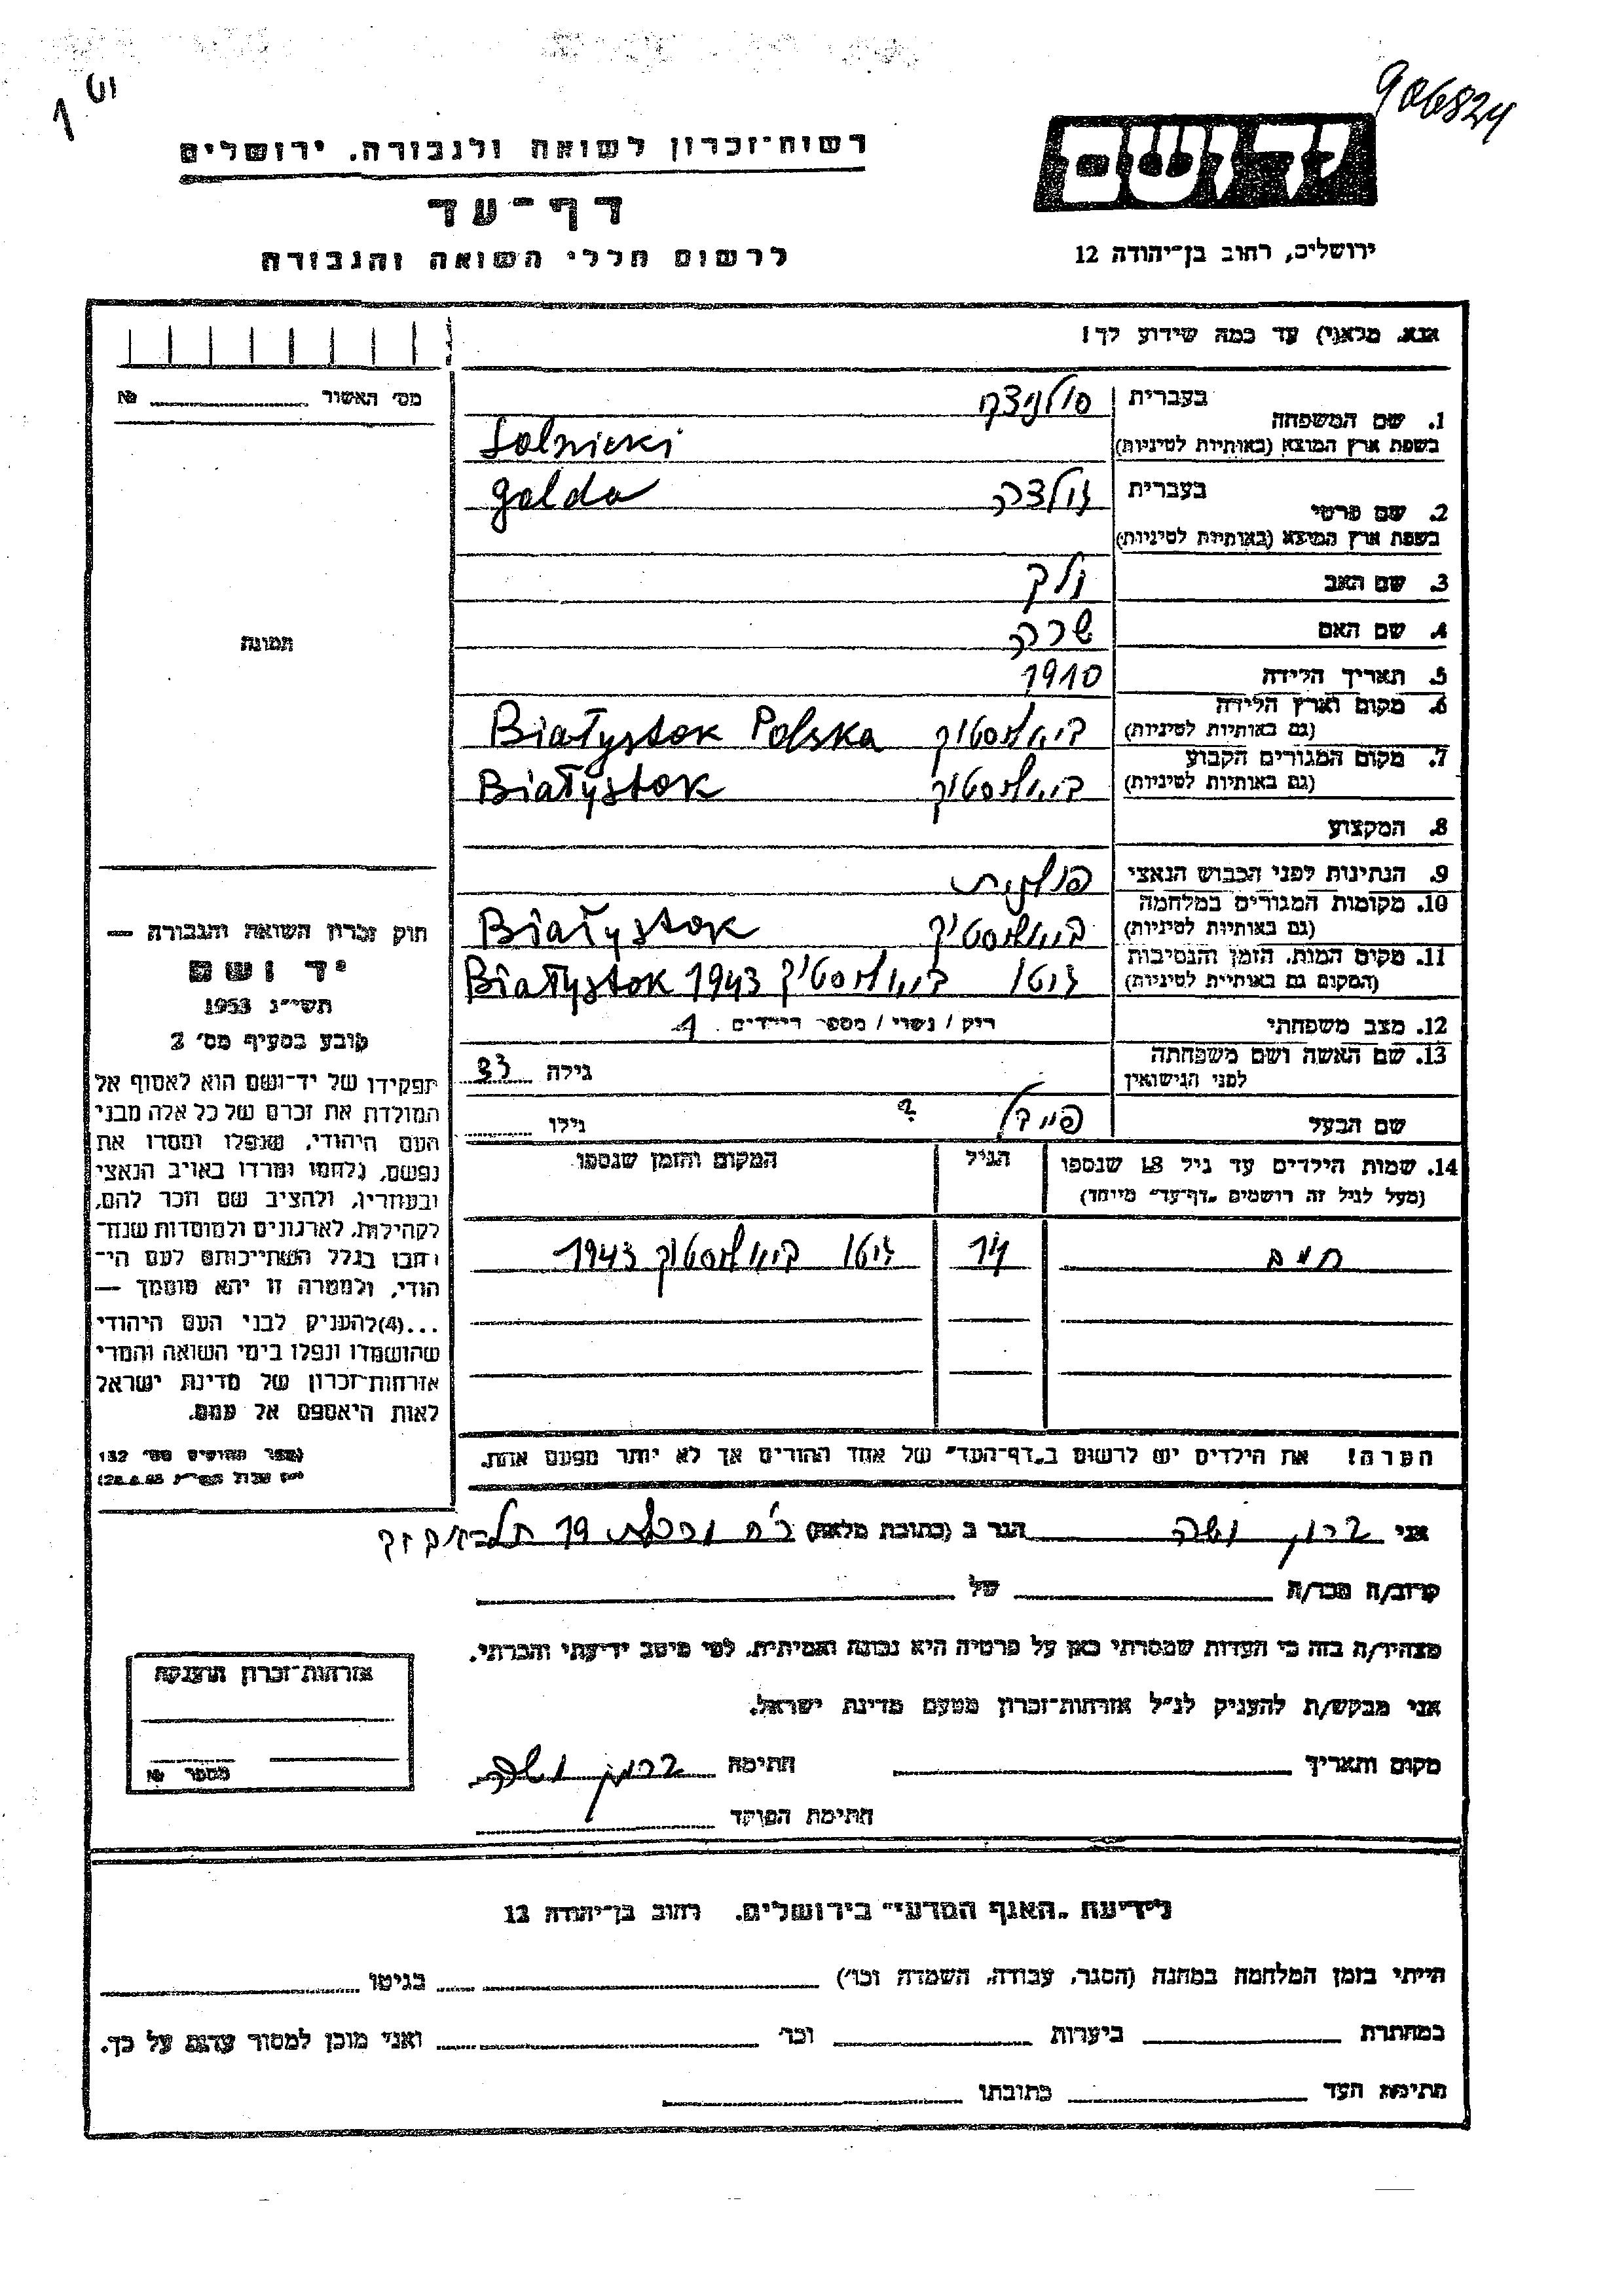 906824
רשות־זכרון לשואה ולגבורה. ירושלים
דף־עד
לרשום חללי השואה והגבורה
ירושלים, רחוב בן־יהודה 12
אנא, מלא(ני) עד כמה שידוע לך!
מס׳ האשור №
1. שם המשפחה
בעברית
בשפת ארץ המוצא (באותיות לטיניות)
Solnicki
2. שם פרטי
בעברית
גולדה
Golda
בשפת ארץ המוצא (באותיות לטיניות)
3. שם האב
4. שם האם שרה
5. תאריך הלידה 1910
6. מקום וארץ הלידה
(גם באותיות לטיניות)
ביאליסטוק Białystok Polska
7. מקום המגורים הקבוע
(גם באותיות לטיניות)
ביאליסטוק Białystok
8. המקצוע
9. הנתינות לפני הכבוש הנאצי פולנית
10. מקומות המגורים במלחמה
(גם באותיות לטיניות)
ביאליסטוק Białystok
11. מקום המות, הזמן והנסיבות
(המקום גם באותיות לטיניות)
גיטו ביאליסטוק Białystok 1943
12. מצב משפחתי
רוק / נשוי / מספר הילדים 1
13. שם האשה ושם משפחתה
לפני הנישואין
גילה 33
שם הבעל
גילו
14. שמות הילדים עד גיל 18 שנספו
(מעל לגיל זה רושמים „דף־עד" מיוחד)
הגיל
המקום והזמן שנספו
חיים
14
גיטו ביאליסטוק 1943
הערה! את הילדים יש לרשום ב„דף־העד" של אחד ההורים אך לא יותר מפעם אחת.
תמונה
חוק זכרון השואה והגבורה —
יד ושם
תשי״ג 1953
קובע בסעיף מס׳ 2
תפקידו של יד־ושם הוא לאסוף אל
המולדת את זכרם של כל אלה מבני
העם היהודי, שנפלו ומסרו את
נפשם, נלחמו ומרדו באויב הנאצי
ובעוזריו, ולהציב שם וזכר להם,
לקהילות, לארגונים ולמוסדות שנח־
רבו בגלל השתייכותם לעם הי־
הודי, ולמטרה זו יהא מוסמך —
...(4)להעניק לבני העם היהודי
שהושמדו ונפלו בימי השואה והמרי
אזרחות־זכרון של מדינת ישראל
לאות היאספם אל עמם.
(ספר החוקים מס׳ 132
אני
הגר ב (כתובת מלאה)
קרוב/ה מכר/ה של
מצהיר/ה בזה כי העדות שמסרתי כאן על פרטיה היא נכונה ואמיתית, לפי מיטב ידיעתי והכרתי.
אני מבקש/ת להעניק לנ״ל אזרחות־זכרון מטעם מדינת ישראל.
מקום ותאריך
חתימה
חתימת הפוקד
אזרחות־זכרון הוענקה
מספר №
לידיעת „האגף המדעי" בירושלים, רחוב בן־יהודה 12
הייתי בזמן המלחמה במחנה (הסגר, עבודה, השמדה וכו׳) בגיטו
במחתרת ביערות וכו׳ ואני מוכן למסור עדות על כך.
חתימת העד כתובתו